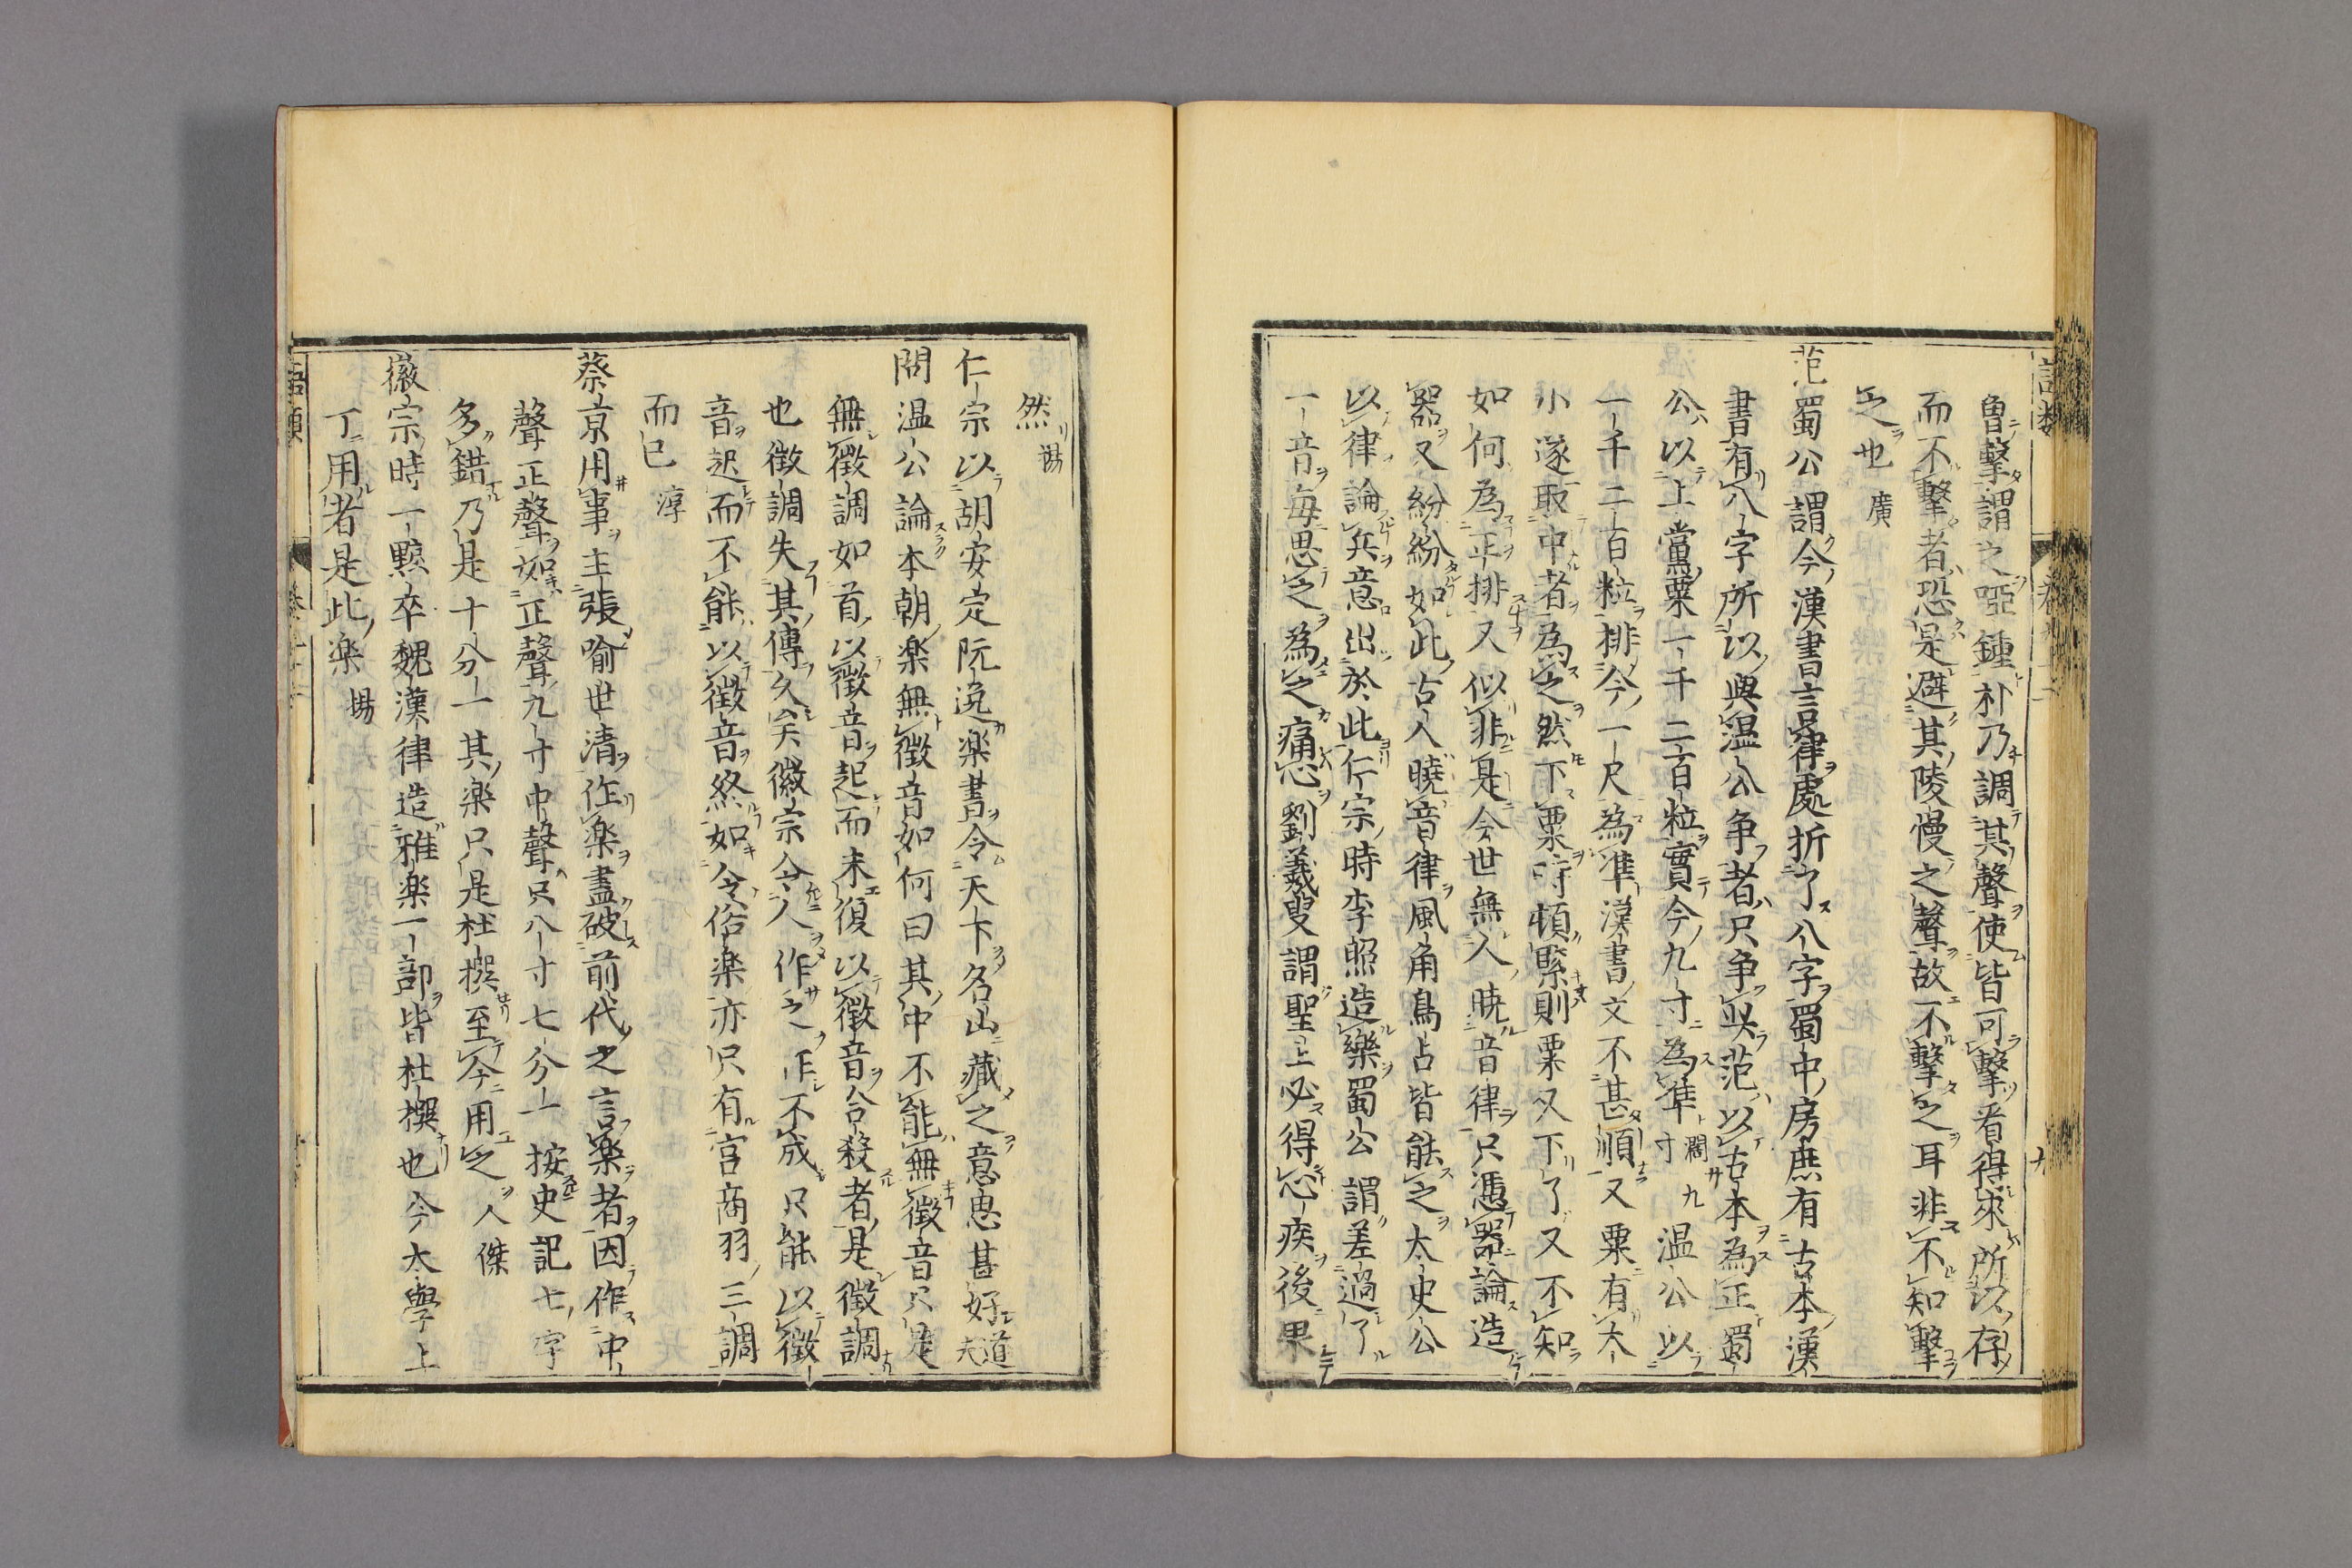 曾擊謂之啞鍾朴乃調其聲使皆可擊看得來所以存
而不擊者恐是避其陵慢之聲故不擊之耳非不知擊
之也 廣
范蜀公謂今漢書言律處折了八字蜀中房庶有古本漢
書有八字所以與溫公争者只争此范以古本為正蜀
公以上黨粟一千二百粒實今九寸為準 闊九寸 温公以
一千二百粒排今一尺為準漢書文不甚順又粟有大
小遂取中者為之然下粟時頓緊則粟又下了又不知
如何為正排又似非是今世無人曉音律只憑器論造
器又紛紛如此古人曉音律風角鳥占皆能之太史公
以律論兵意出於此仁宗時李照造樂蜀公謂差過了
一音毎思之為之痛心劉羲叟謂聖上必得心疾後果
然 揚
仁宗以胡安定阮逸楽書令天下名山藏之意思甚好 道夫
問温公論本朝楽無徴音如何曰其中不能無徴音只是
無徴調如首以徴音起而末復以徴音合殺者是徴調
也徴調失其傳久矣徽宗令人作之作不成只能以徴
音起而不能以徴音終如今俗楽亦只有宮商羽三調
而已 淳
蔡京用事主張喻世清作楽盡破前代之言楽者因作中
聲正聲如正聲九寸中聲只八寸七分一按史記七字
多錯乃是十分一其楽只是杜撰至今用之 人傑
徽宗時一黥卒魏漢律造雅楽一部皆杜撰也今太學上
丁用者是此楽 揚